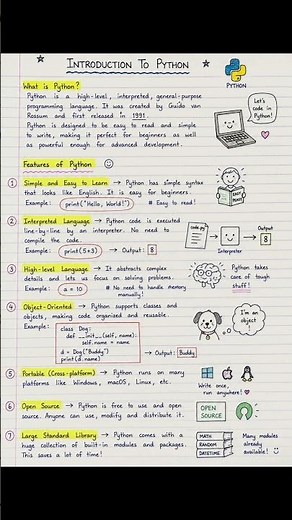 INTRODUCTION TO PYTHON
PYTHON
What is Python?
Python is a high-level, interpreted, general-purpose
programming language. It was created by Guido van
Rossum and first released in 1991.
Python is designed to be easy to read and simple
to write, making it perfect for beginners as well
as powerful enough for advanced development.
Let's
code in
Python!
Features of Python
1 Simple and Easy to Learn → Python has simple syntax
that looks like English. It is easy for beginners.
Example: print("Hello, World!") # Easy to read!
EASY
2 Interpreted Language → Python code is executed
line-by-line by an interpreter. No need to
compile the code.
Example: print(5+3) → Output: 8
code.py
Interpreter
Output
8
3 High-level Language → It abstracts complex
details and lets us focus on solving problems.
Example: a = 10 # No need to handle memory
manually!
Python takes
care of tough
stuff!
4 Object-Oriented → Python supports classes and
objects, making code organised and reusable.
Example: class Dog:
def __init__(self, name):
self.name = name
d = Dog("Buddy")
print(d.name) → Output: Buddy
I'm an
object!
5 Portable (Cross-platform) → Python runs on many
platforms like Windows, macOS, Linux, etc.
Write once,
run anywhere!
6 Open Source → Python is free to use and open
source. Anyone can use, modify and distribute it.
OPEN
SOURCE
7 Large Standard Library → Python comes with a
huge collection of built-in modules and packages.
This saves a lot of time!
MATH
RANDOM
DATETIME
Many modules
already
available!